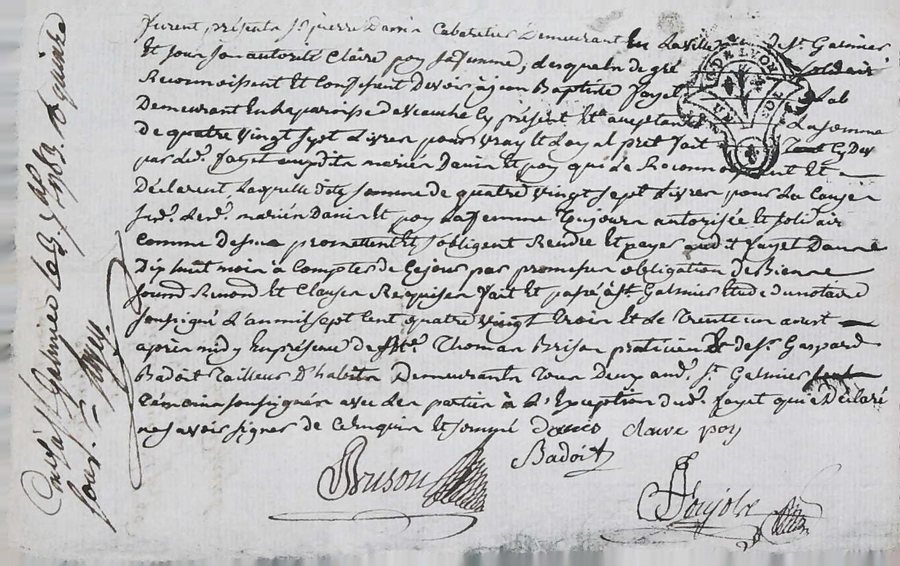 furent présents Sr pierre Danis Cabaretier Demeurant En La Ville de St. Galmier
Et sous son autorité Claire poy sa femme, lesquels de gré solidair
Reconnoissent Et Confessent Devoir à jean Baptiste fayet Lab
Demeurant En la paroisse de present Et acceptant La somme
de quatre vingt sept Livres pour vray Et Loyal prêt fait Cy Dev
par led. fayet auxdits mariés Danis Et poy qui Le Reconnoissent Et
Déclarent Laquelle dite somme de quatre vingt sept Livres pour La Cause
susd. Lesd. mariés Danis Et poy La femme Toujours autorisée Et solidair
Comme Dessus promettent Et s'obligent Rendre Et payer audit fayet Dans
Dix huit mois à Compter de Ce jour par promesses obligation de Biens
soumi Renond Et Clauses Requises fait Et passé à St. Galmier Etude du notaire
soussigné L'an mil sept Cent quatre vingt trois Et Le trente un aoust
après midy En présence de Thomas Brison praticien Et de Sr. Gaspard
Badoit Tailleur D'habits Demeurants Tous Deux aud. St. Galmier
témoins soussignés avec Les parties à L'Exception dud. fayet qui a Déclaré
ne savoir signer de Ce Enquis Et sommé danis claire poy
Badoit
Brison
Ponjole
Con^lé à St Galmier Le 3 7bre 1783. R quinze
sous.